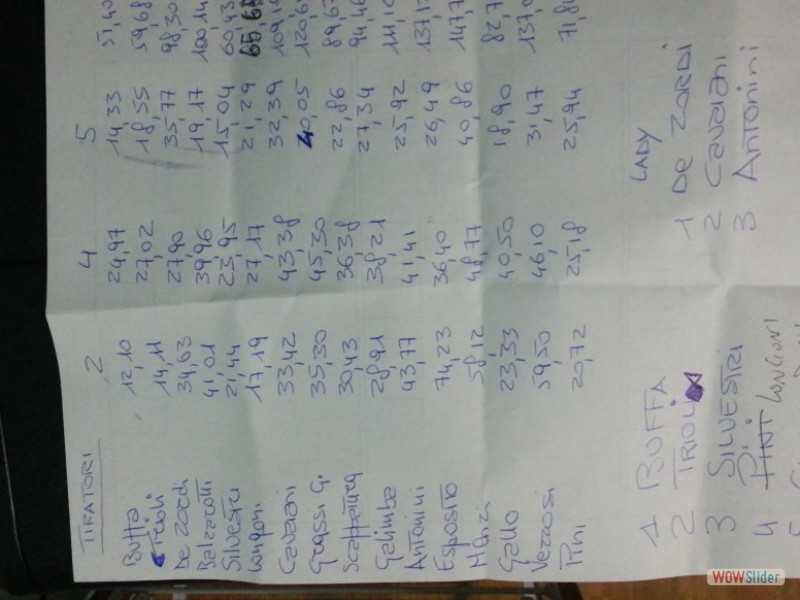 TIRATORI 2 4 5
Buffa 12,10 24,97 14,33 51,40
Trioli 14,11 27,02 18,55 59,68
De Zordi 34,63 27,90 35,77 98,30
Balzarotti 41,01 39,96 19,17 100,14
Silvestri 21,44 23,95 15,04 60,43
Longoni 17,19 27,17 21,29 65,65
Cavaiani 33,42 43,38 32,39
Grassi G. 35,30 45,30 40,05
Scappatura 30,43 36,38 22,86
Galimba 28,91 38,21 27,34 94,46
Antonini 43,77 41,41 25,92
Esposito 74,23 36,40 26,49
Monzi 58,12 48,77 40,86
Gallo 23,33 40,50 18,90
Vezzosi 59,50 46,10 31,47
Pini 20,72 25,18 25,94 71,84
1 BUFFA
2 TRIOLI
3 SILVESTRI
4 PINI LONGONI
LADY
1 De ZORDI
2 Cavaiani
3 Antonini
WOWSlider